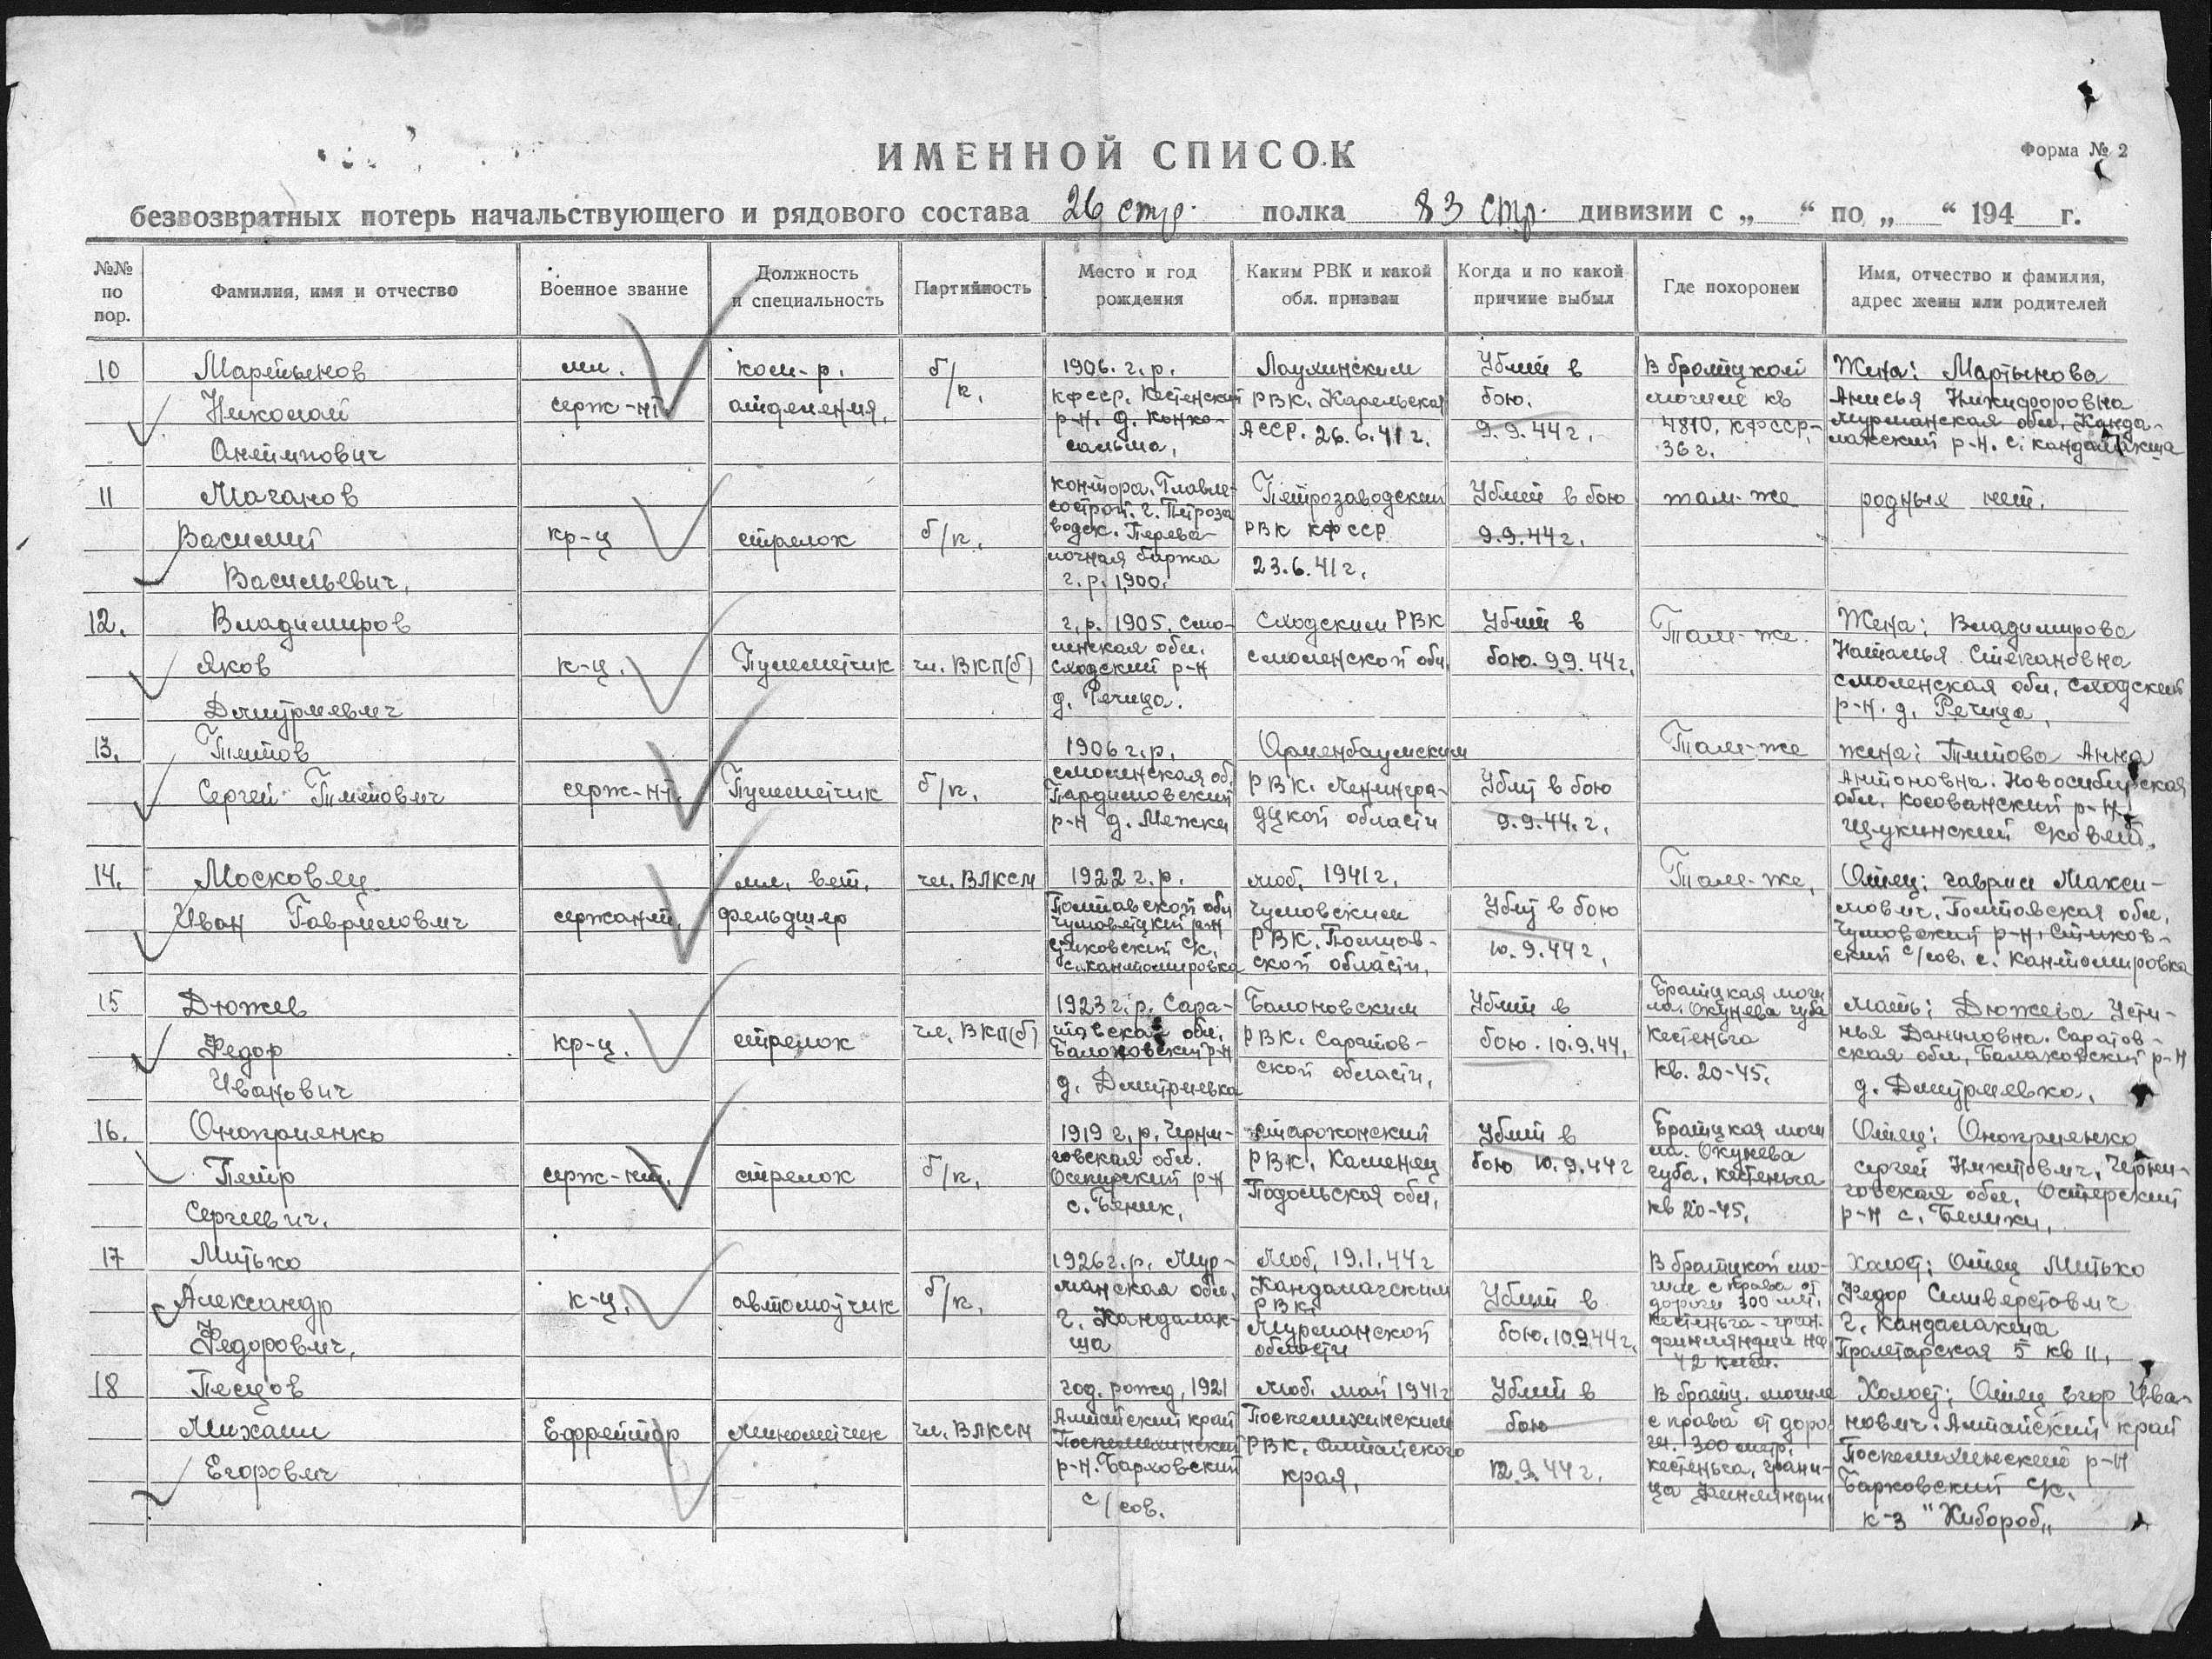 ИМЕННОЙ СПИСОК
Форма № 2
безвозвратных потерь начальствующего и рядового состава 26 стр. полка 83 стр. дивизии с „ “ по „ “ 194 г.
№№ по пор.
Фамилия, имя и отчество
Военное звание
Должность и специальность
Партийность
Место и год рождения
Каким РВК и какой обл. призван
Когда и по какой причине выбыл
Где похоронен
Имя, отчество и фамилия, адрес жены или родителей
10
Мартьянов
Николай
Антипович
мл.
серж-нт
ком-р.
отделения.
б/п.
1906. г. р.
КФССР. Кестенский
р-н. д. Конко-
сальма,
Лоухинским
РВК. Карельская
АССР. 26.6.41 г.
Убит в
бою.
9.9.44 г.
В братцкой
могиле кв
4810. КФССР-
36 г.
Жена: Мартынова
Анисья Никифоровна
Мурманская обл. Канда-
лакский р-н. с. Кандалакша
11
Маганов
Василий
Васильевич,
кр-ц
стрелок
б/п.
контора. Главле-
сострой. г. Петроза
водск. Перева-
лочная биржа
г. р. 1900.
Петрозаводским
РВК КФССР
23.6.41 г.
Убит в бою
9.9.44 г.
там-же
родных нет.
12.
Владимиров
Яков
Дмитриевич
к-ц.
Пулеметчик
чл. ВКП(б)
г. р. 1905. Смо-
ленская обл.
Сходский р-н
д. Речица.
Сходским РВК
Смоленской обл.
Убит в
бою. 9.9.44 г.
Там-же.
Жена: Владимирова
Наталья Степановна
Смоленская обл, Сходский
р-н. д. Речица,
13.
Титов
Сергей Титович
серж-нт.
Пулеметчик
б/п.
1906 г. р.
Смоленская об.
р-н д. Межки
Ораненбаумским
РВК. Ленингра-
дцкой области
Убит в бою
9.9.44. г.
Там-же
жена: Титова Анна
Антоновна. Новосибирская
обл. р-н
Щукинский Сковет.
14.
Московец
Иван Гаврилович
сержант.
мл. вет.
фельдшер
чл. ВЛКСМ
1922 г. р.
Полтавской обл
р-н
с. Кантомировка
моб. 1941 г.
Чутовским
РВК. Полтов-
ской области,
Убит в бою
10.9.44 г,
Там-же,
Отец: Гаврил Макси-
мович. Полтовская обл.
Чутовский р-н,
с/сов. с. Кантомировка
15
Дюжев
Федор
Иванович
кр-ц.
стрелок
чл. ВКП(б)
1923 г. р. Сара-
товская обл.
Балаковский р-н
д. Дмитриевка
Балоновским
РВК. Саратов-
ской области,
Убит в
бою. 10.9.44,
Братцкая моги
ла. Окунева губа
Кестеньга
кв. 20-45.
Мать: Дюжева Усти-
нья Даниловна. Саратов-
ская обл, Балаковский р-н
д. Дмитриевка.
16.
Оноприенко
Петр
Сергеевич.
серж-нт.
стрелок
б/п.
1919 г. р. Черни-
говская обл.
р-н
РВК. Каменец
Подольская обл.
Убит в
бою 10.9.44 г
Братцкая моги
ла. Окунева
губа. Кестеньга
кв 20-45.
Отец: Оноприенко
Сергей Никитович, Черни-
говская обл. Остерский
р-н с. Белики,
17
Митько
Александр
Федорович,
к-ц.
автоматчик
б/п.
1926 г. р. Мур-
манская обл.
г. Кандалак-
ша
Моб. 19.1.44 г
Кандалагским
РВК.
Мурманской
области
Убит в
бою. 10.9.44 г.
В братцкой мо-
гиле с права от
дороги 300 мет.
Кестеньга - гран.
Финляндии на
42 клм.
Холост; Отец Митько
Федор Силверстович
г. Кандалакша
Пролетарская 5 кв 11,
18
Песцов
Михаил
Егорович
Ефрейтор
Минометчик
чл. ВЛКСМ
год. рожд. 1921
Алтайский край
Поспелихинский
р-н. Барховский
с/сов.
Моб. май 1941 г
Поспелихинским
РВК. Алтайского
края.
Убит в
бою
12.9.44 г.
В братц. могиле
с права от доро
ги. 300 метр.
Кестеньга, грани-
ца Финляндии
Холост; Отец Егор Ива-
нович. Алтайский край
Поспелихинский р-н
Барковский с/с.
к-з "Хибороб„